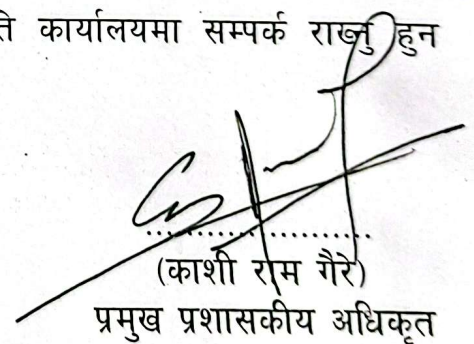 ति कार्यालयमा सम्पर्क राख्नु हुन
(काशी राम गैरे)
प्रमुख प्रशासकीय अधिकृत